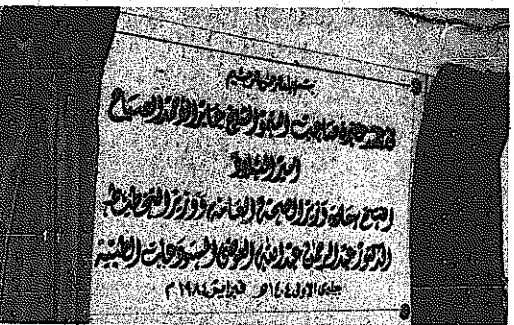 بسم الله الرحمن الرحيم
حضرة صاحب السمو الشيخ جابر الأحمد الصباح
أمير البلاد
افتتح سعادة وزير الصحة العامة ووزير التخطيط
الدكتور عبد الرحمن عبد الله العوضي المستودعات الطبية
جمادى الاولى ١٤٠٤ هـ فبراير ١٩٨٤ م